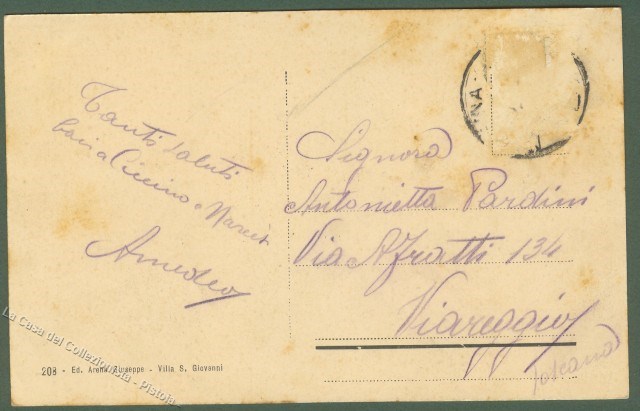 Tanti saluti
baci a Ciccino e
Amedeo
Signora
Antonietta Pardini
Via A Fratti 134
Viareggio
(Toscana)
208 - Ed. Arena Giuseppe - Villa S. Giovanni
La Casa del Collezionista - Pistoia